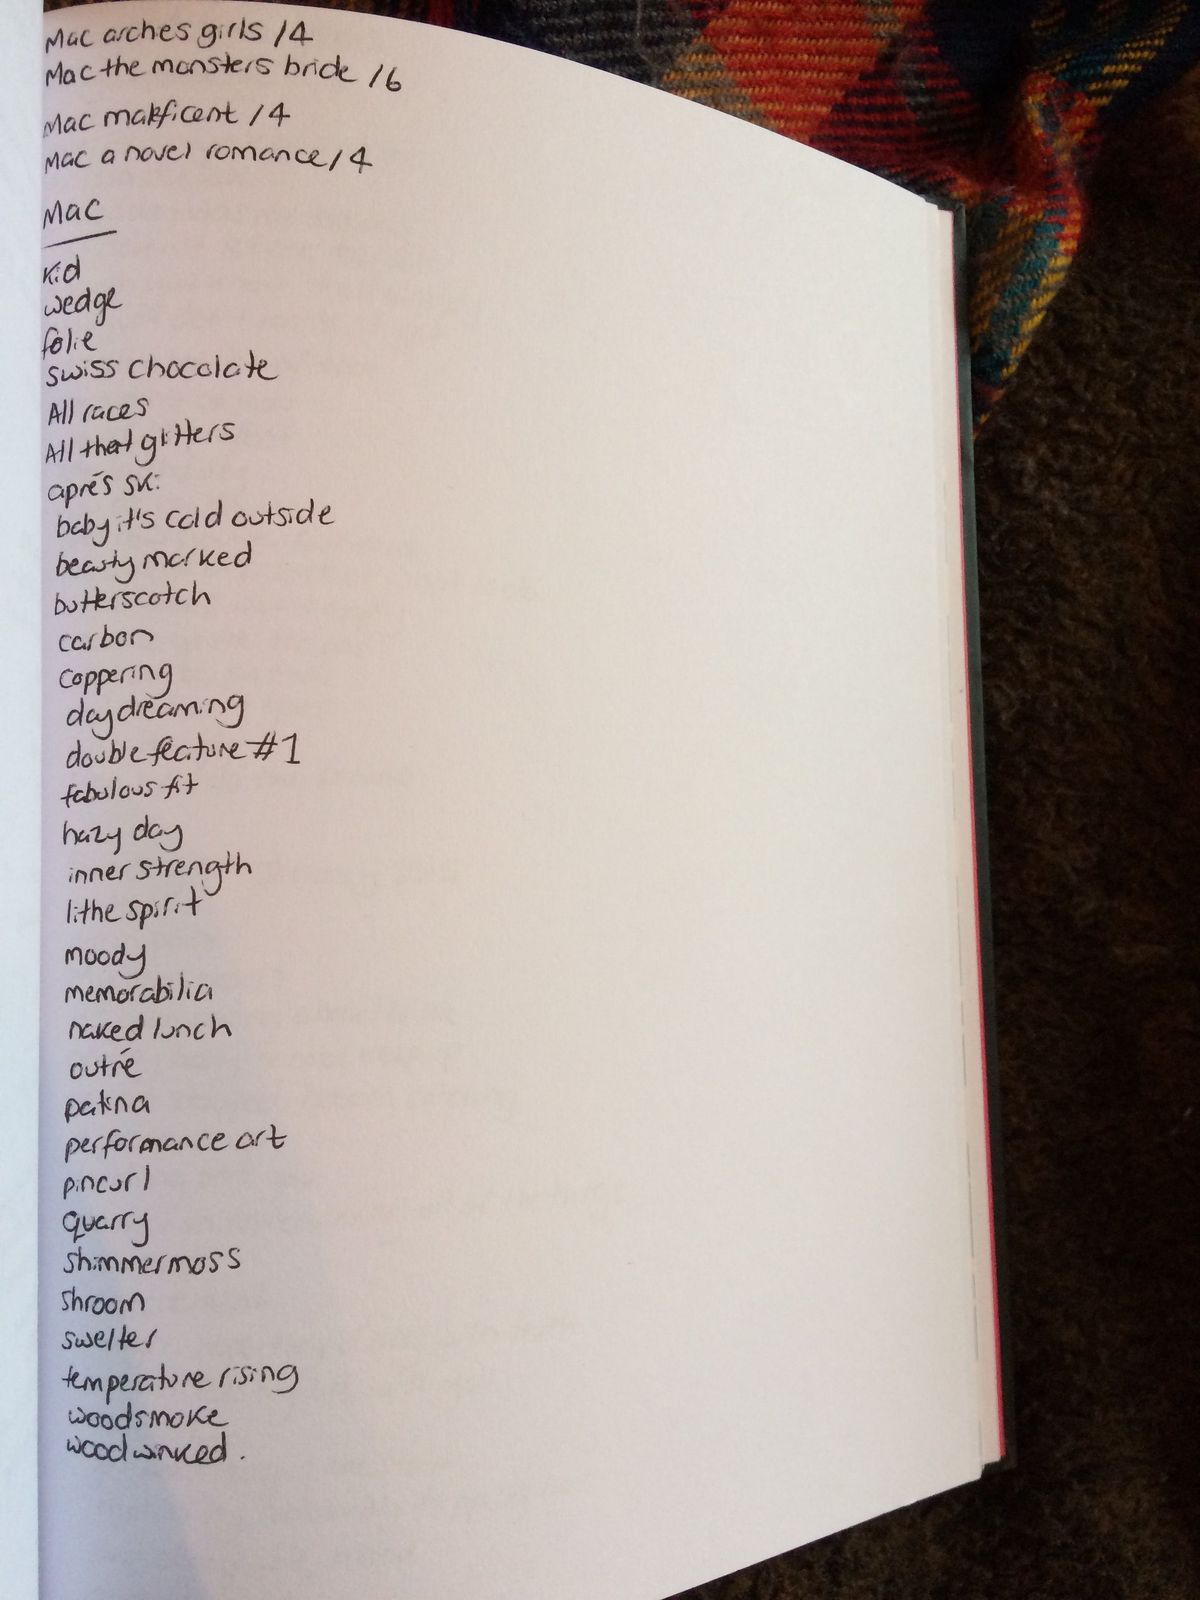 Mac arches girls /4
Mac the monsters bride /6
Mac maleficent /4
Mac a novel romance /4
Mac
kid
wedge
folie
swiss chocolate
All races
All that glitters
aprés ski
baby it's cold outside
beauty marked
butterscotch
carbon
coppering
day dreaming
double feature #1
fabulous fit
hazy day
inner strength
lithe spirit
moody
memorabilia
naked lunch
outré
patina
performance art
pincurl
quarry
shimmermoss
shroom
swelter
temperature rising
woodsmoke
woodwinked.